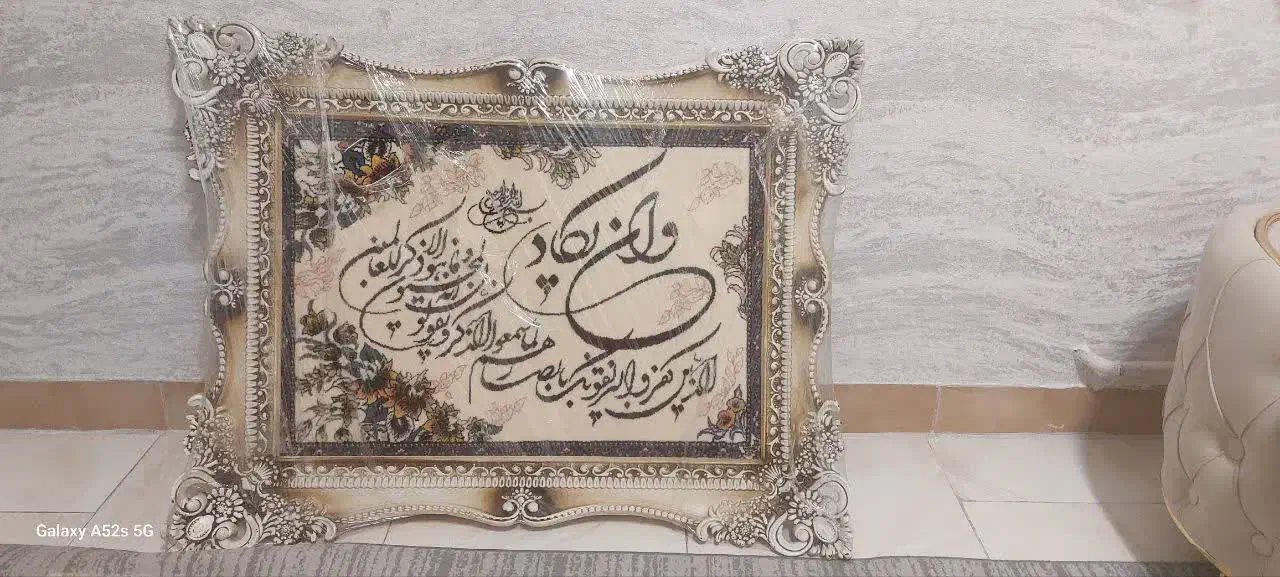 وان یکاد
الذین کفروا لیزلقونک بابصارهم
لما سمعوا الذکر و یقولون
انه لمجنون
وما هو الا ذکر للعالمین
Galaxy A52s 5G